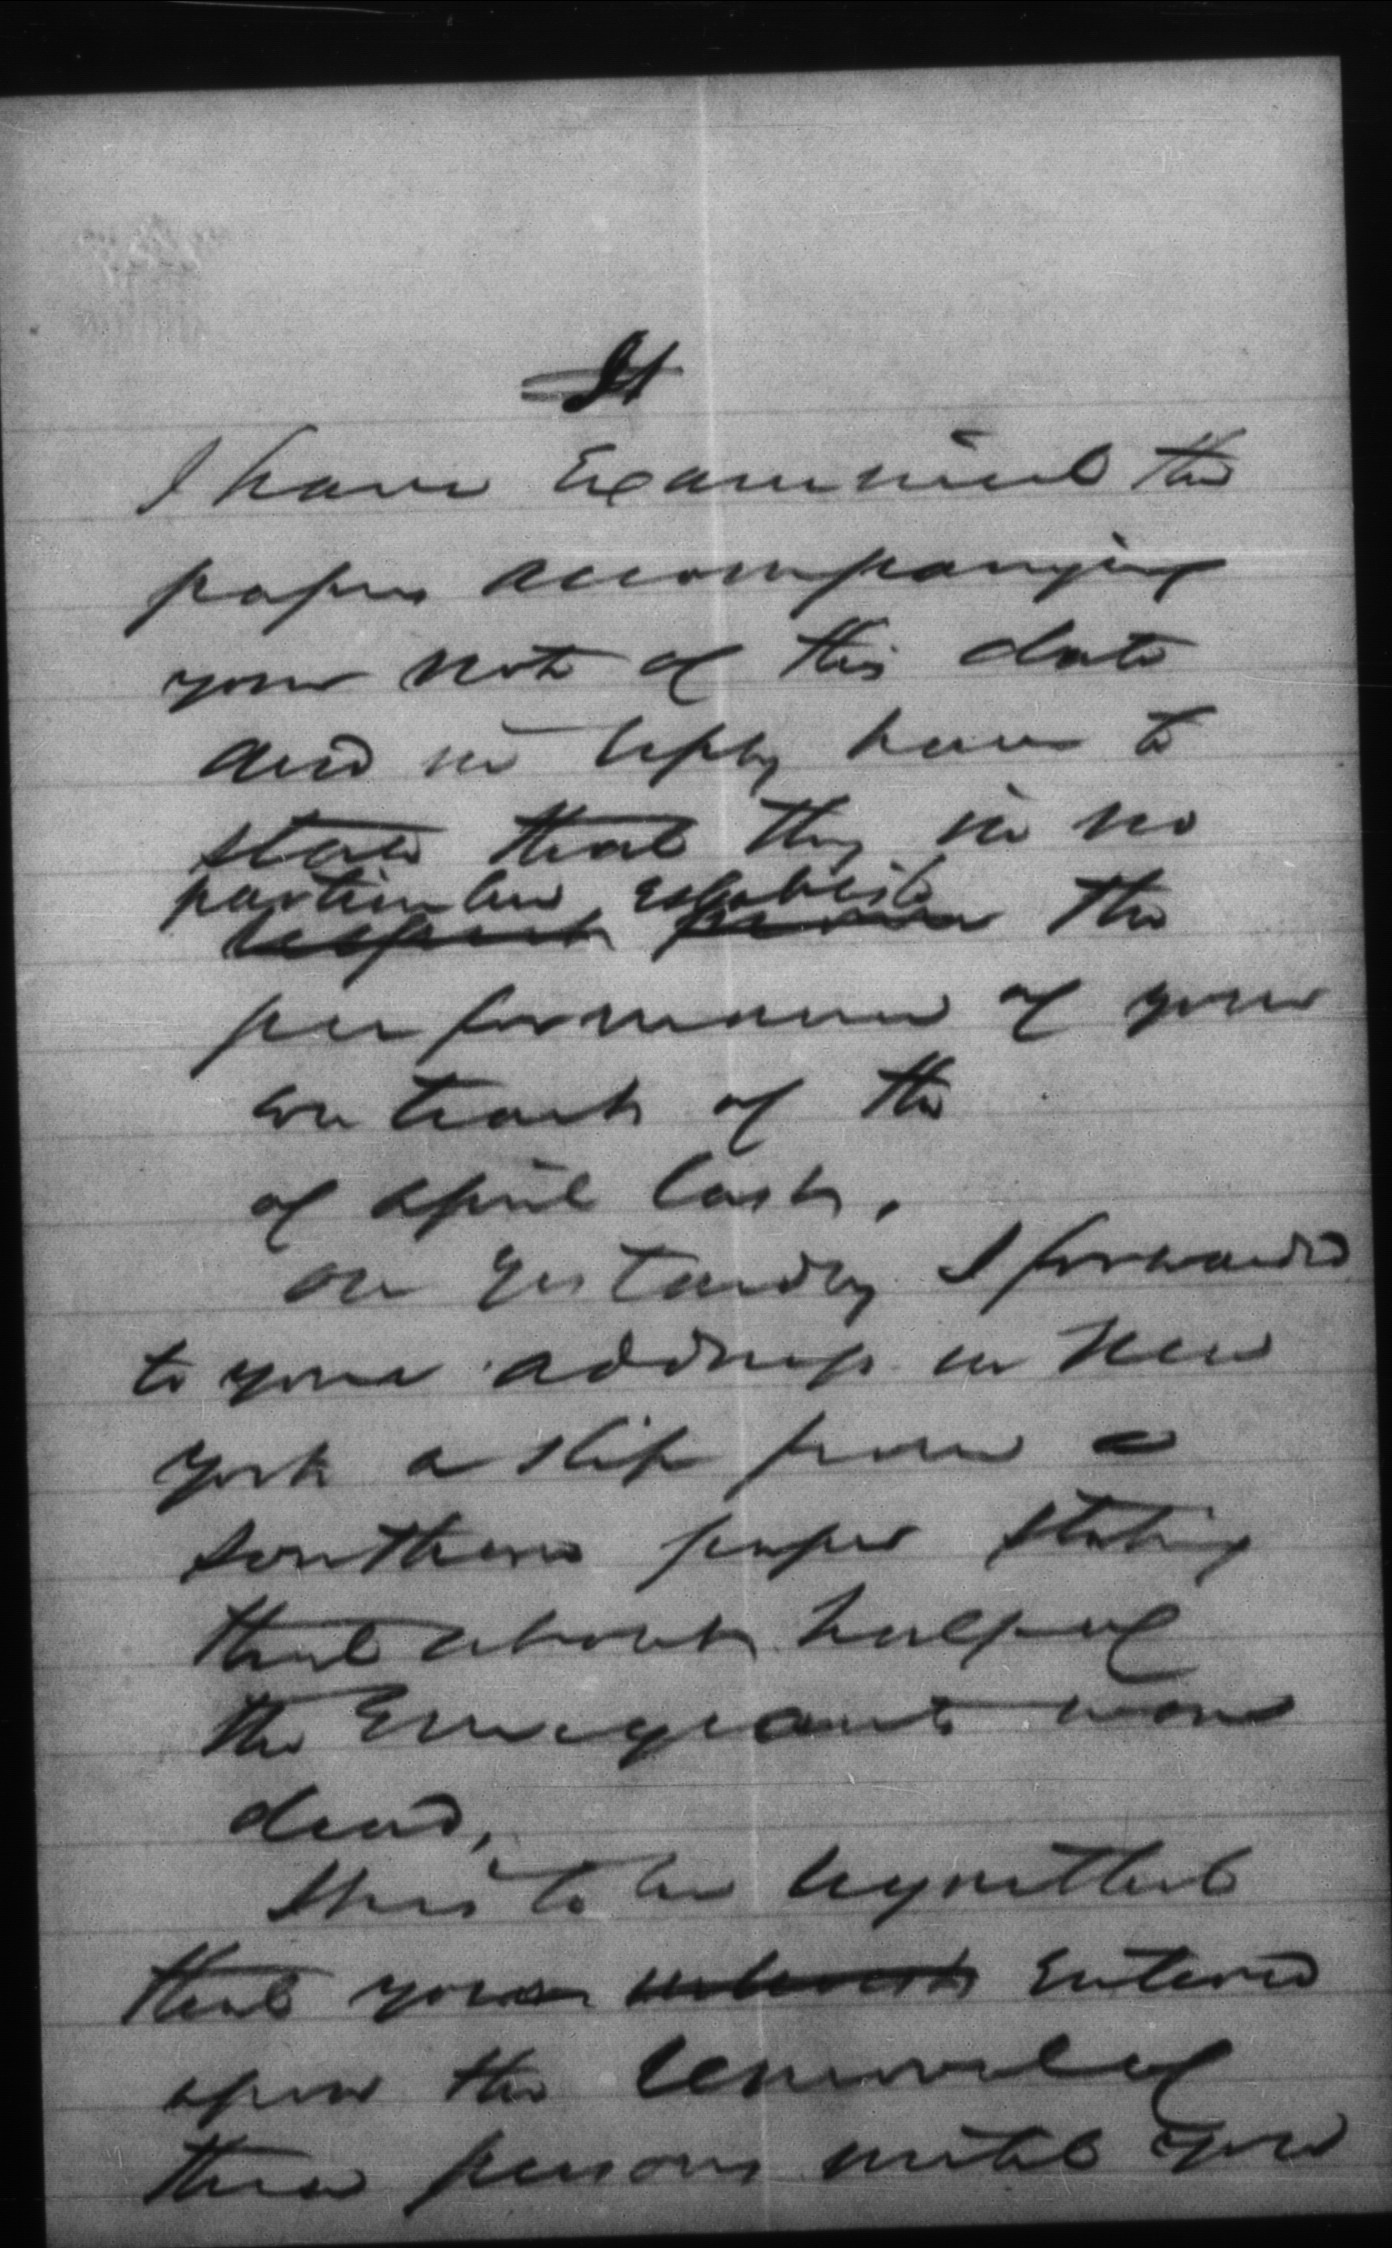 It
I have Examined the
papers accompanying
your note of this date
and in reply have to
state that they in no
particular establish
respect prove the
performance of your
contract of the
of April last.
On Yestarday I forwarded
to your address in New
York a slip from a
Southern paper stating
that about half of
the Emigrants were
dead,
It is to be regretted
that you Entered
upon the removal of
these persons until you